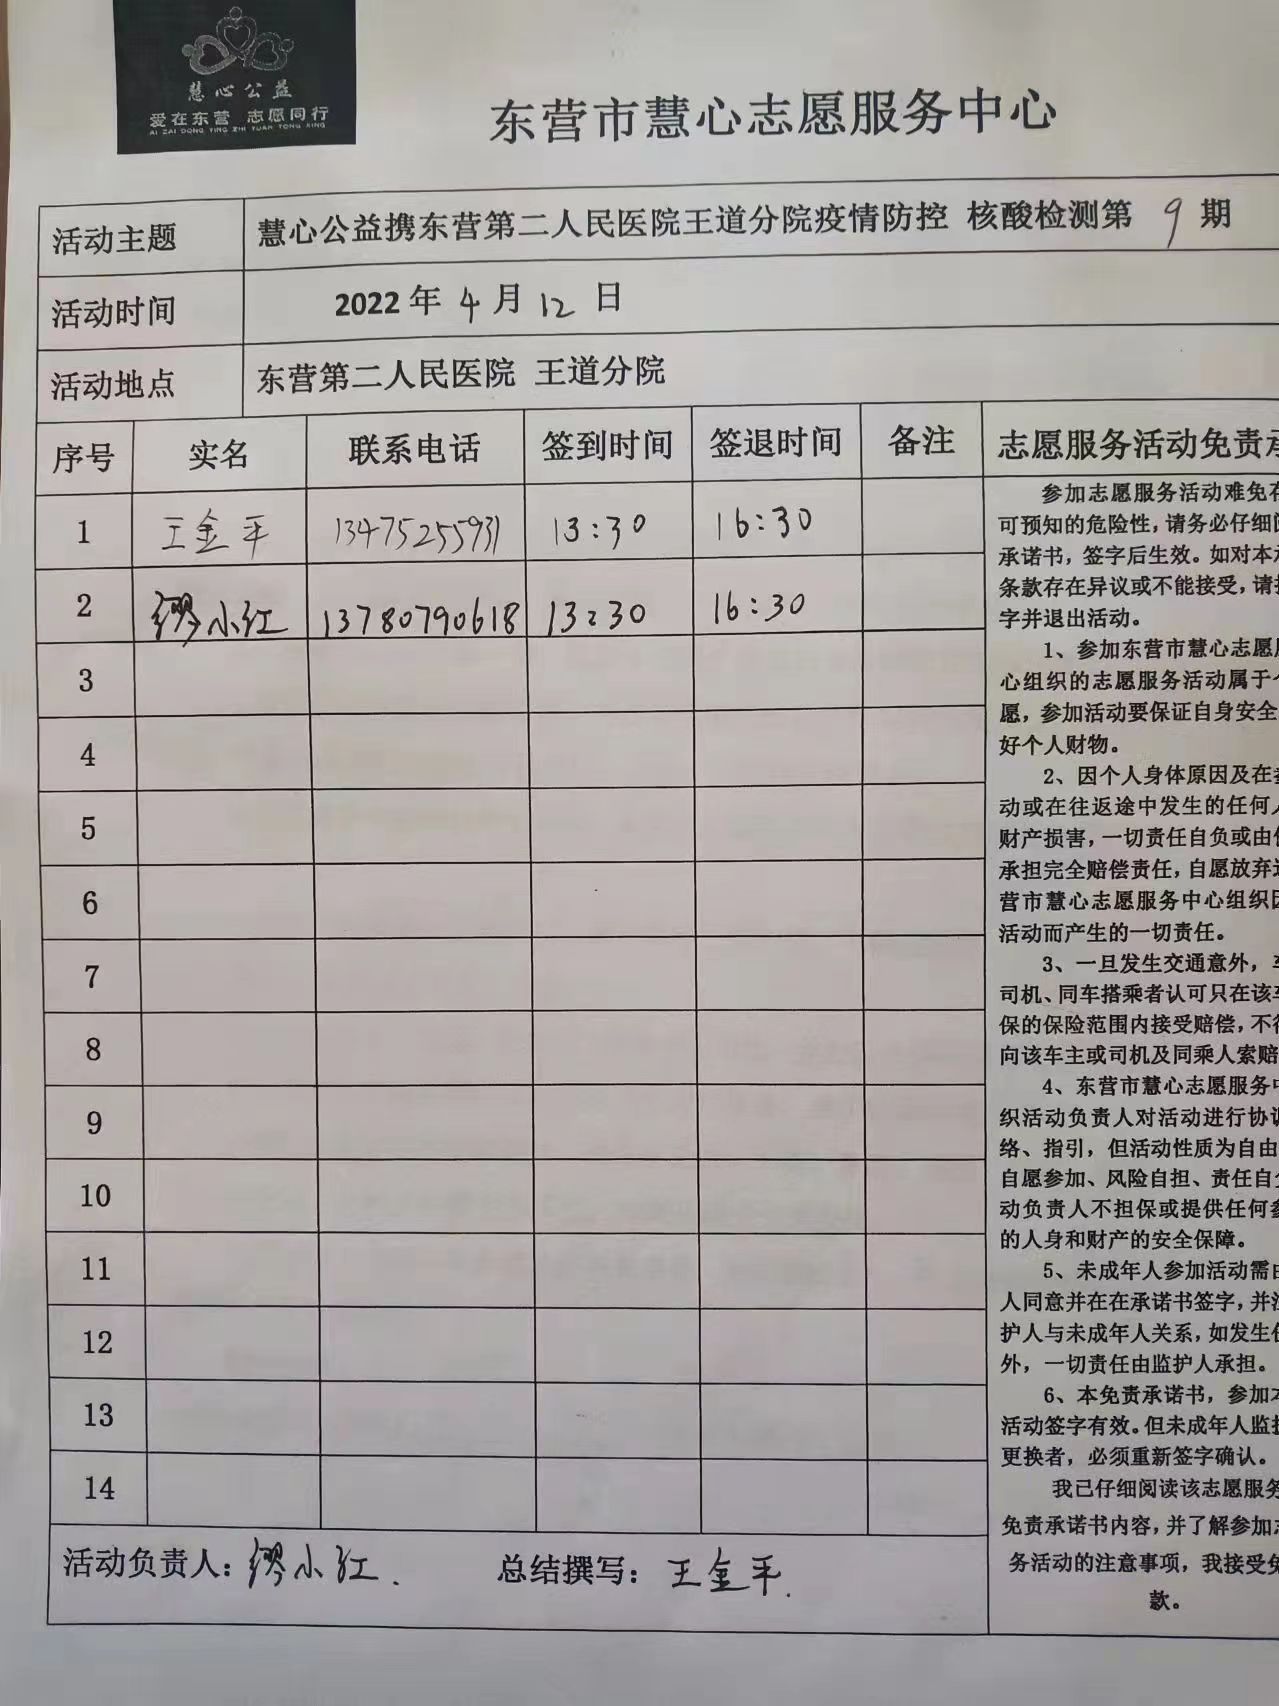 慧心公益
爱在东营 志愿同行
AI ZAI DONG YING ZHI YUAN TONG XING
东营市慧心志愿服务中心
活动主题 慧心公益携东营第二人民医院王道分院疫情防控 核酸检测第 9 期
活动时间 2022 年 4 月 12 日
活动地点 东营第二人民医院 王道分院
序号 实名 联系电话 签到时间 签退时间 备注 志愿服务活动免责
1 王金平 13475255931 13:30 16:30
2 缪小红 13780790618 13:30 16:30
3
4
5
6
7
8
9
10
11
12
13
14
参加志愿服务活动难免存
可预知的危险性，请务必仔细阅
承诺书，签字后生效。如对本
条款存在异议或不能接受，请
字并退出活动。
1、参加东营市慧心志愿
心组织的志愿服务活动属于
愿，参加活动要保证自身安全
好个人财物。
2、因个人身体原因及在
动或在往返途中发生的任何
财产损害，一切责任自负或由
承担完全赔偿责任，自愿放弃
营市慧心志愿服务中心组织
活动而产生的一切责任。
3、一旦发生交通意外，
司机、同车搭乘者认可只在该
保的保险范围内接受赔偿，不
向该车主或司机及同乘人索赔
4、东营市慧心志愿服务
织活动负责人对活动进行协
络、指引，但活动性质为自由
自愿参加、风险自担、责任自
动负责人不担保或提供任何
的人身和财产的安全保障。
5、未成年人参加活动需
人同意并在在承诺书签字，并
护人与未成年人关系，如发生
外，一切责任由监护人承担。
6、本免责承诺书，参加
活动签字有效。但未成年人监
更换者，必须重新签字确认。
我已仔细阅读该志愿服务
免责承诺书内容，并了解参加
务活动的注意事项，我接受
款。
活动负责人：缪小红. 总结撰写：王金平.